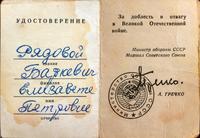 УДОСТОВЕРЕНИЕ
Рядовой
звание
Бажкевич
фамилия
Елизавете
имя
Петровне
отчество
За доблесть и отвагу
в Великой Отечественной
войне.
Министр обороны СССР
Маршал Советского Союза
А. ГРЕЧКО